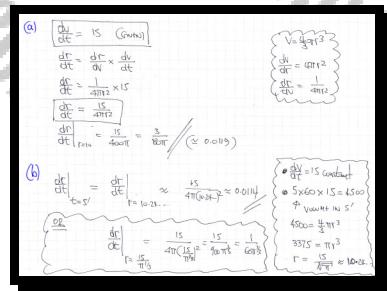 (a)
dv/dt = 15 (Given)
dr/dt = dr/dV × dv/dt
dr/dt = 1/4πr2 × 15
dr/dt = 15/4πr2
dr/dt | r=10 = 15/400π = 3/80π (≈ 0.0119)
V = 4/3πr3
dV/dr = 4πr2
dr/dV = 1/4πr2
(b)
dr/dt | t=5' = dr/dt | r=10.24... ≈ 15/4π(10.24..)2 ≈ 0.0114
OR
dr/dt | r=15/π1/3 = 15/4π(15/π1/3)2 = 15/900π1/3 = 1/60π1/3
• dV/dt = 15 constant
• 5×60×15 = 4500
VOLUME IN 5'
4500 = 4/3πr3
3375 = πr3
r = 15/∛π ≈ 10.24..